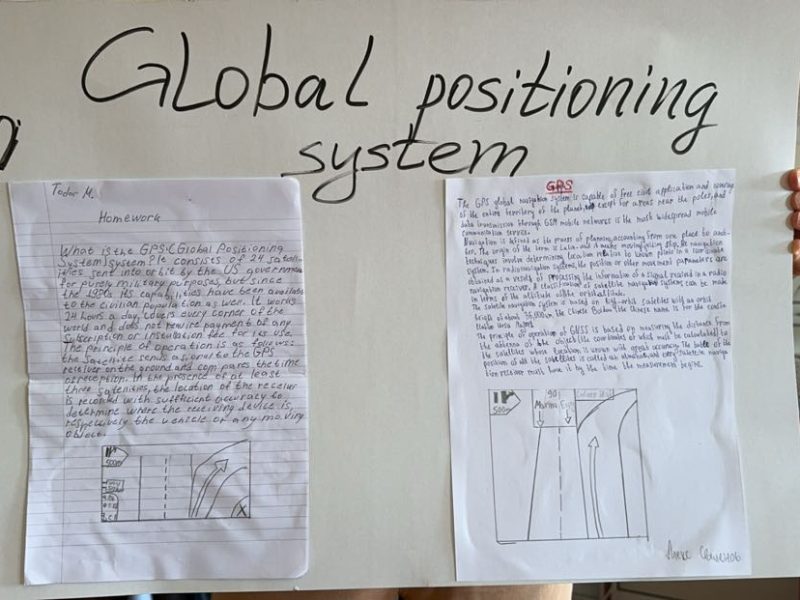 Global positioning
system
Todor M.
Homework
What is the GPS (Global Positioning
System) system? It consists of 24 satell-
ities sent into orbit by the US government
for purely military purposes, but since
the 1980s its capabilities have been available
to the civilian population as well. It works
24 hours a day, covers every corner of the
world and does not require payment of any
subscription or installation fee for its use.
The principle of operation is as follows:
the satellite sends a signal to the GPS
receiver on the ground and compares the time
of reception. In the presence of at least
three satellities, the location of the receiver
is recorded with sufficient accuracy to
determine where the receiving device is,
respectively the vehicle or any moving
object.
500m
X
GPS
The GPS global navigation system is capable of free civil application and covering
of the entire territory of the planet, except for areas near the poles, and
data transmission through GSM mobile networks is the most widespread mobile
communication service.
Navigation is defined as the process of planning, accounting from one place to anoth-
er. The origin of the term is Latin, and it means moving the ship. All navigation
techniques involve determining location relative to known points in a
system. In radionavigation systems, the position or other movement parameters are
obtained as a result of processing the information of a signal received in a radio
navigation receiver. A classification of satellite navigation systems can be made
in terms of the altitude of the orbital
The satellite navigation system is based on high-orbit satellites with an orbital
height of about the Chinese Beidou (the Chinese name is for the
The principle of operation of GNSS is based on measuring the distance from
the antenna of the object (the coordinates of which must be calculated) to
the satellites whose location is known with great accuracy. The table of the
position of all satellites is called an almanach, and every satellite naviga-
tion receiver must have it by the time the measurement begins.
500m
90